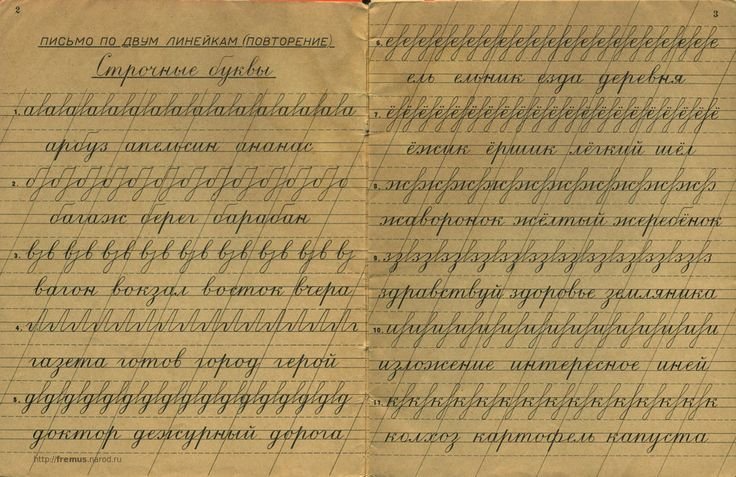 2
ПИСЬМО ПО ДВУМ ЛИНЕЙКАМ (ПОВТОРЕНИЕ)
Строчные буквы
1.
арбуз апельсин ананас
2.
багаж берег барабан
3.
вагон вокзал восток вчера
4.
газета готов город герой
5.
доктор дежурный дорога
http://fremus.narod.ru
3
6.
ель ельник езда деревня
7.
ёжик ёршик лёгкий шёл
8.
жаворонок жёлтый жеребёнок
9.
здравствуй здоровье земляника
10.
изложение интересное иней
11.
колхоз картофель капуста